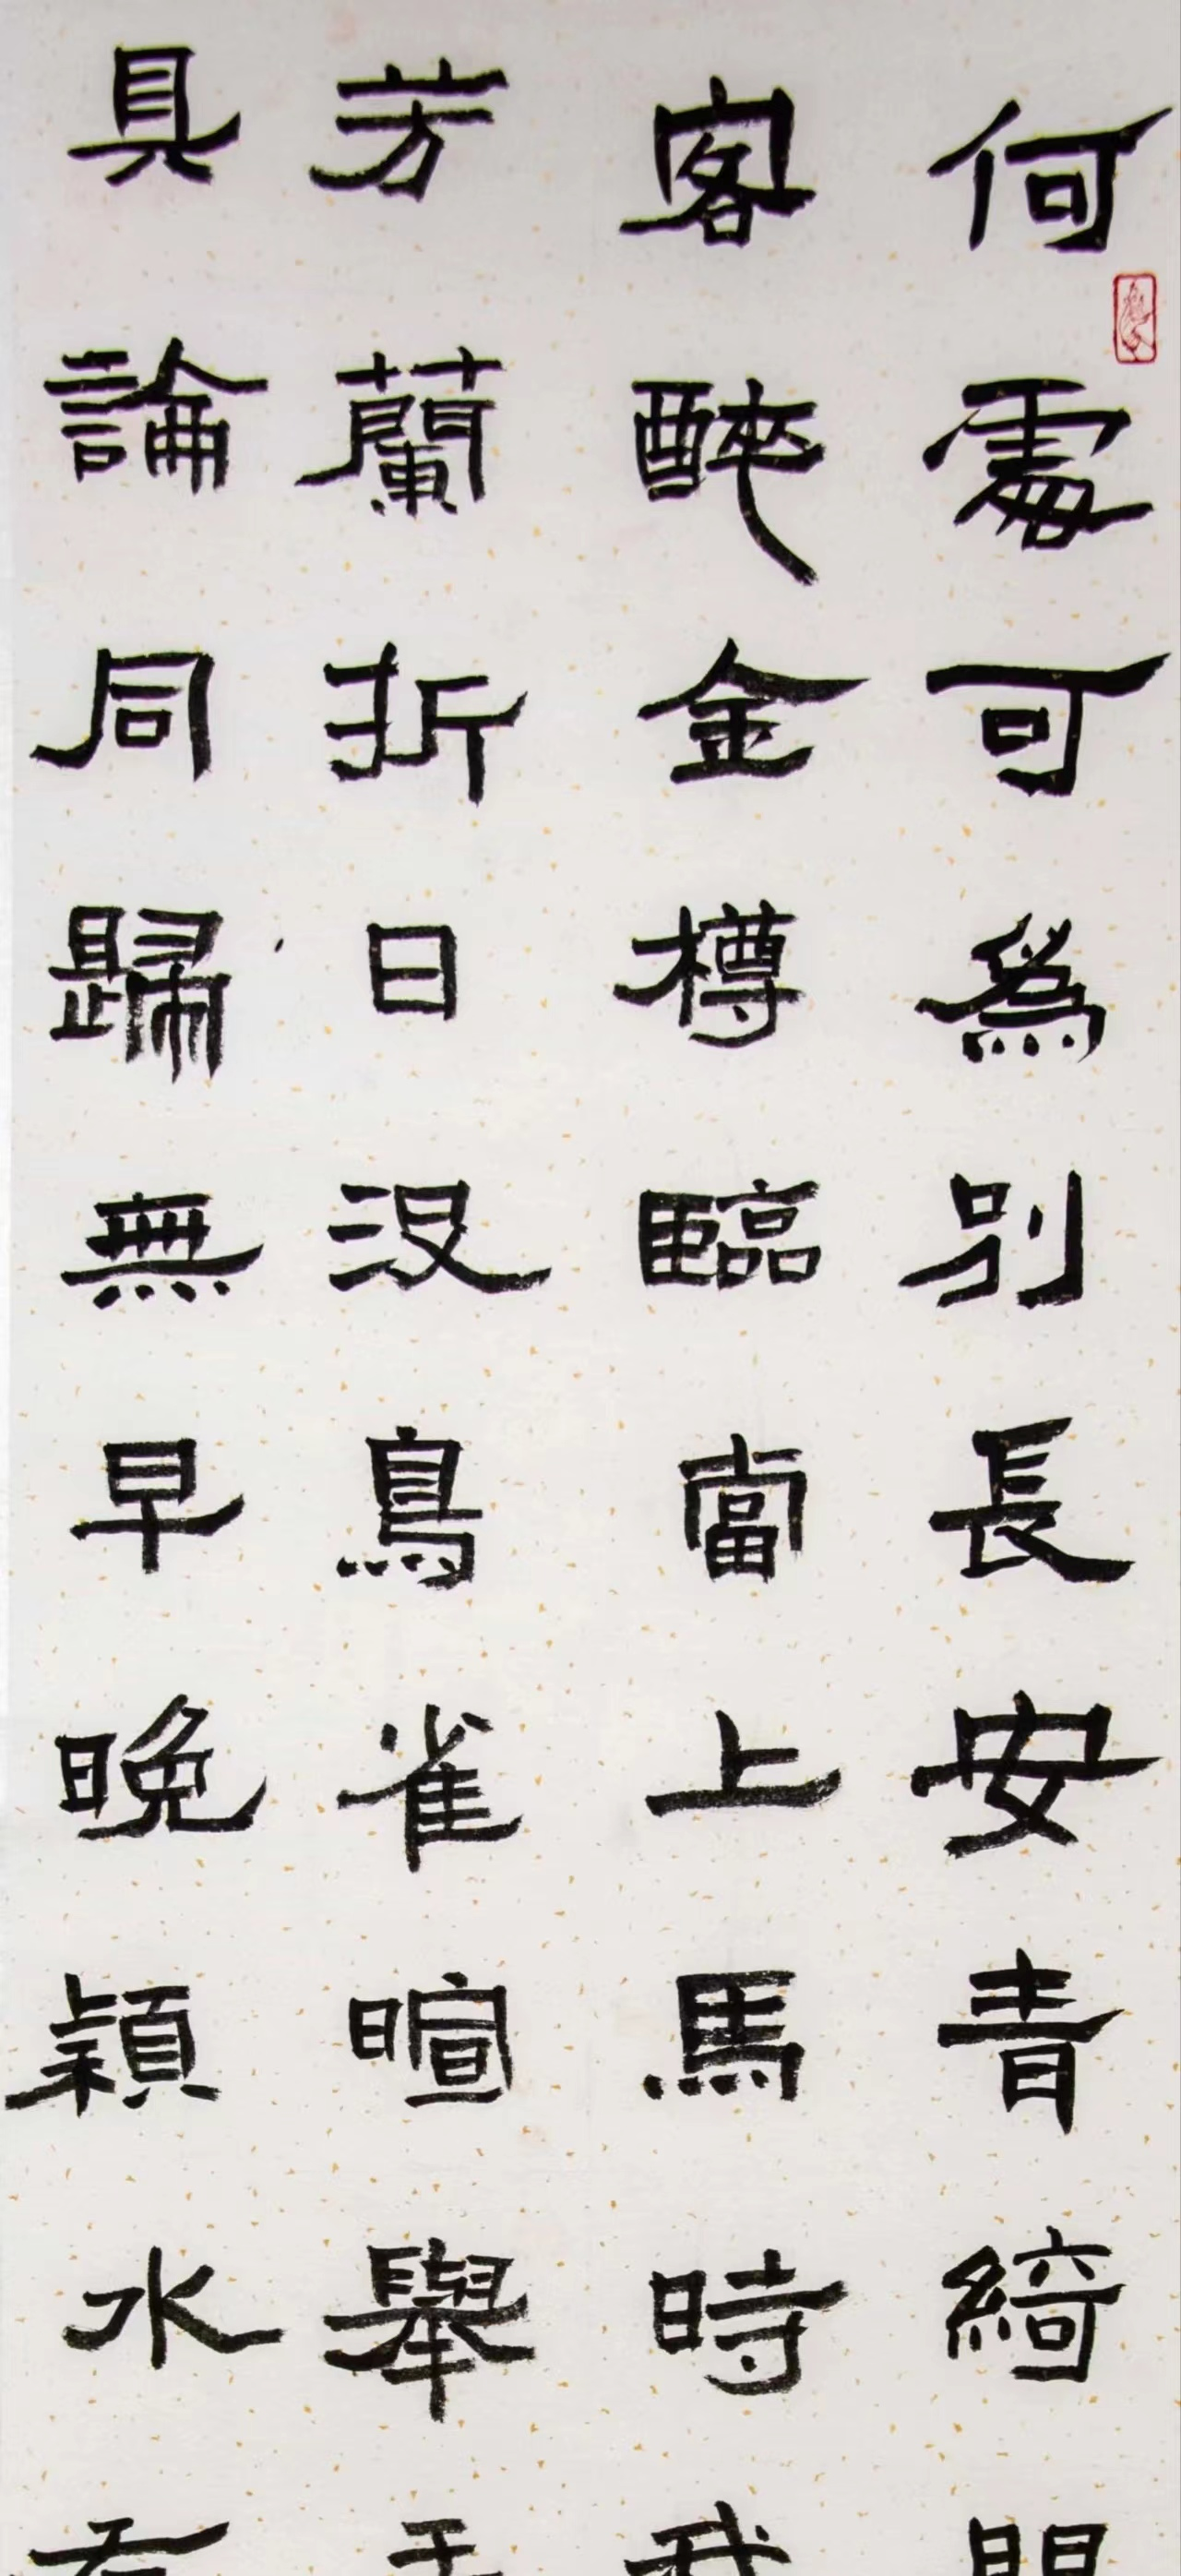 何處可為別長安青綺
客醉金樽臨當上馬時
芳蘭折日没鳥雀暄舉
具論同歸無早晚穎水